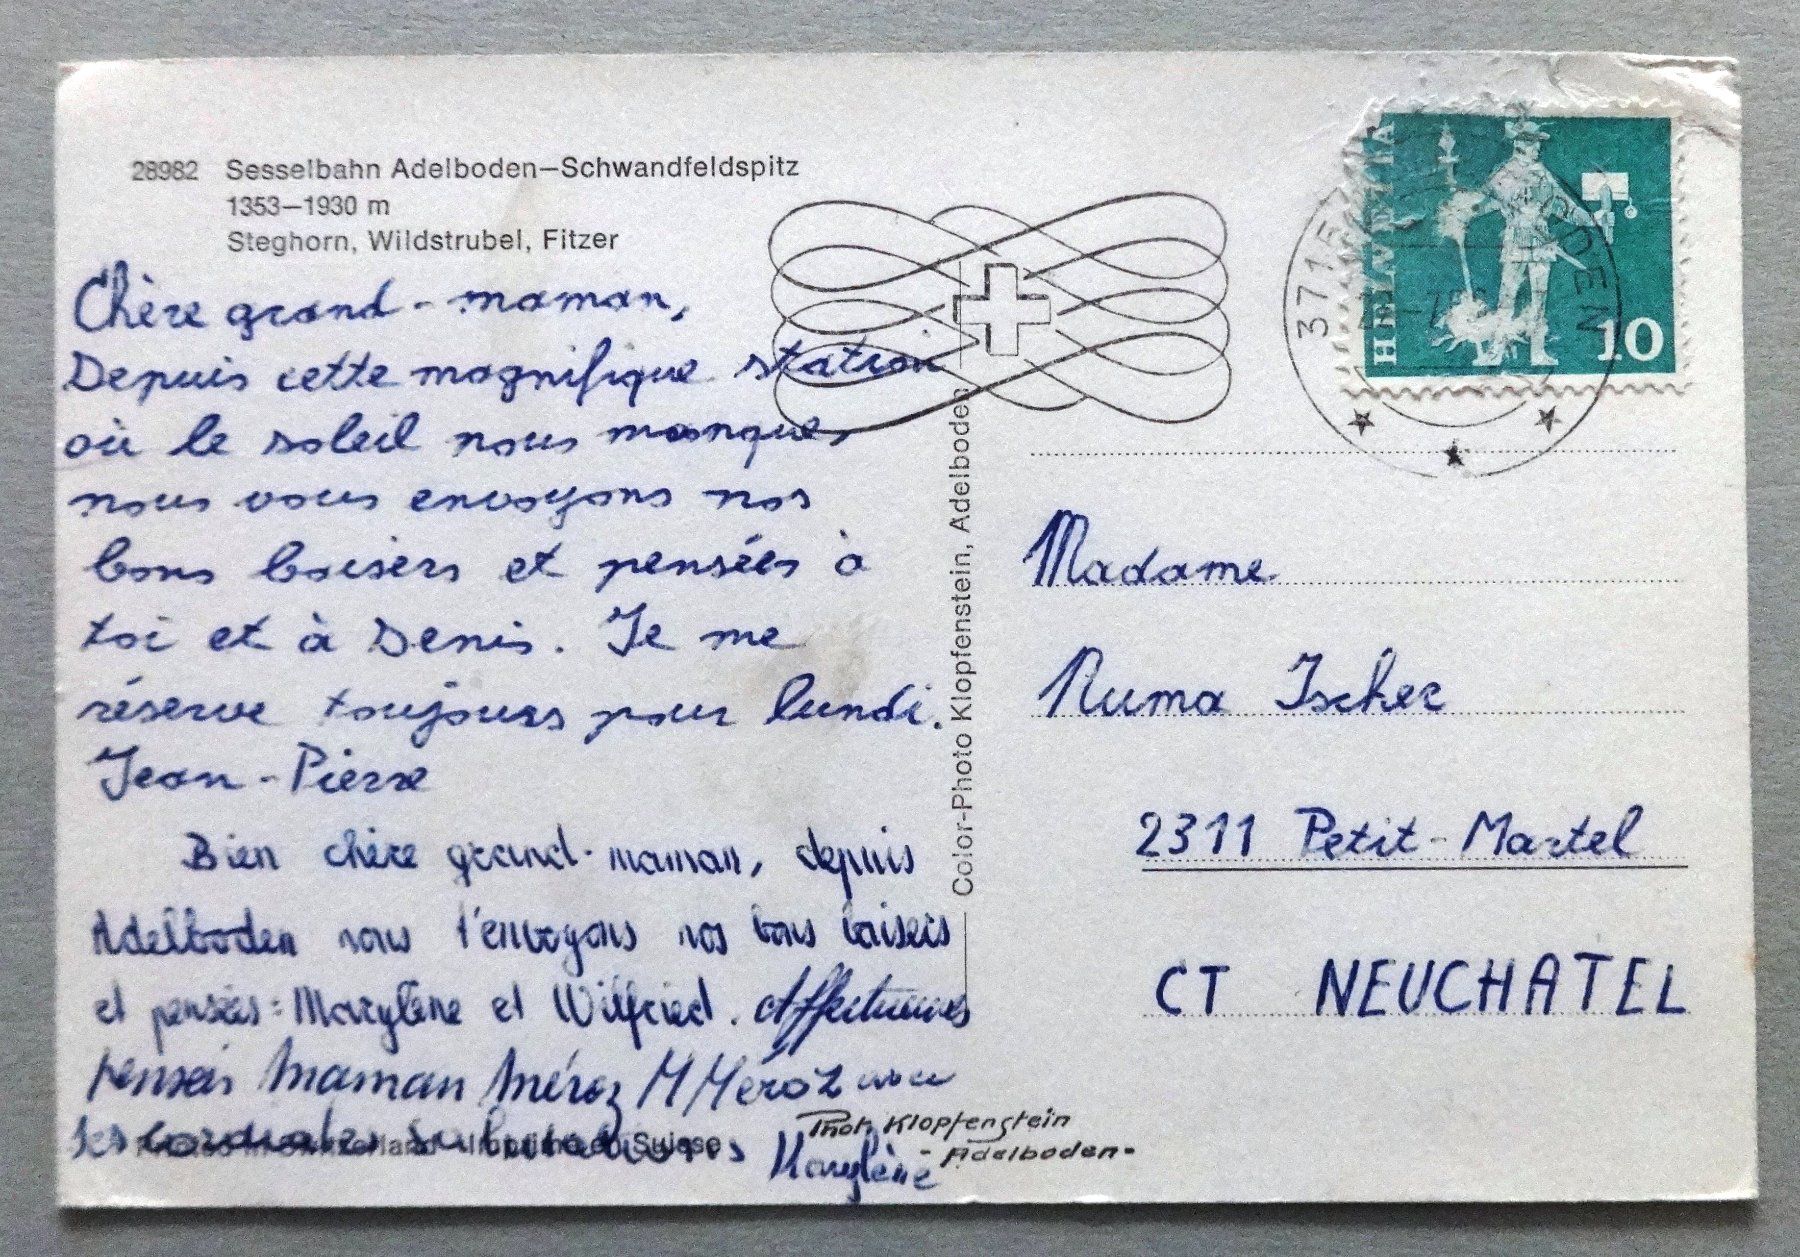 28982 Sesselbahn Adelboden–Schwandfeldspitz
1353–1930 m
Steghorn, Wildstrubel, Fitzer
Chère grand-maman,
Depuis cette magnifique station
où le soleil nous manque,
nous vous envoyons nos
bons baisers et pensées à
toi et à Denis. Je me
réserve toujours pour lundi.
Jean-Pierre
Bien chère grand-maman, depuis
Adelboden nous t'envoyons nos bons baisers
et pensées: Marylène et Wilfried. Affectueuses
pensées Maman Méroz M Méroz avec
ses cordiales salutations Marylène
Color-Photo Klopfenstein, Adelboden
Phot. Klopfenstein
- Adelboden -
HELVETIA
10
3715 ADELBODEN
Madame
Numa Ischer
2311 Petit-Martel
CT NEUCHATEL